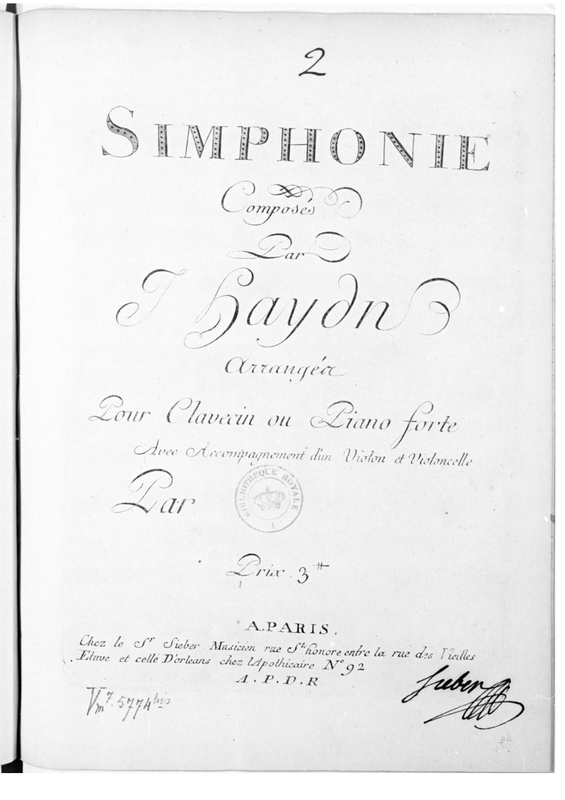 2
SIMPHONIE
Composés
Par
J Haydn
Arrangée
Pour Clavecin ou Piano forte
Avec Accompagnement d'un Violon et Violoncelle
Par
BIBLIOTHEQUE ROYALE
Prix 3 ₶
A.PARIS.
Chez le Sr Sieber Musicien rue St honore entre la rue des Vieilles
Etuve et celle D'orleans chez l'Apothicaire No 92
A.P.D.R
Sieber
Vm7. 5774 bis